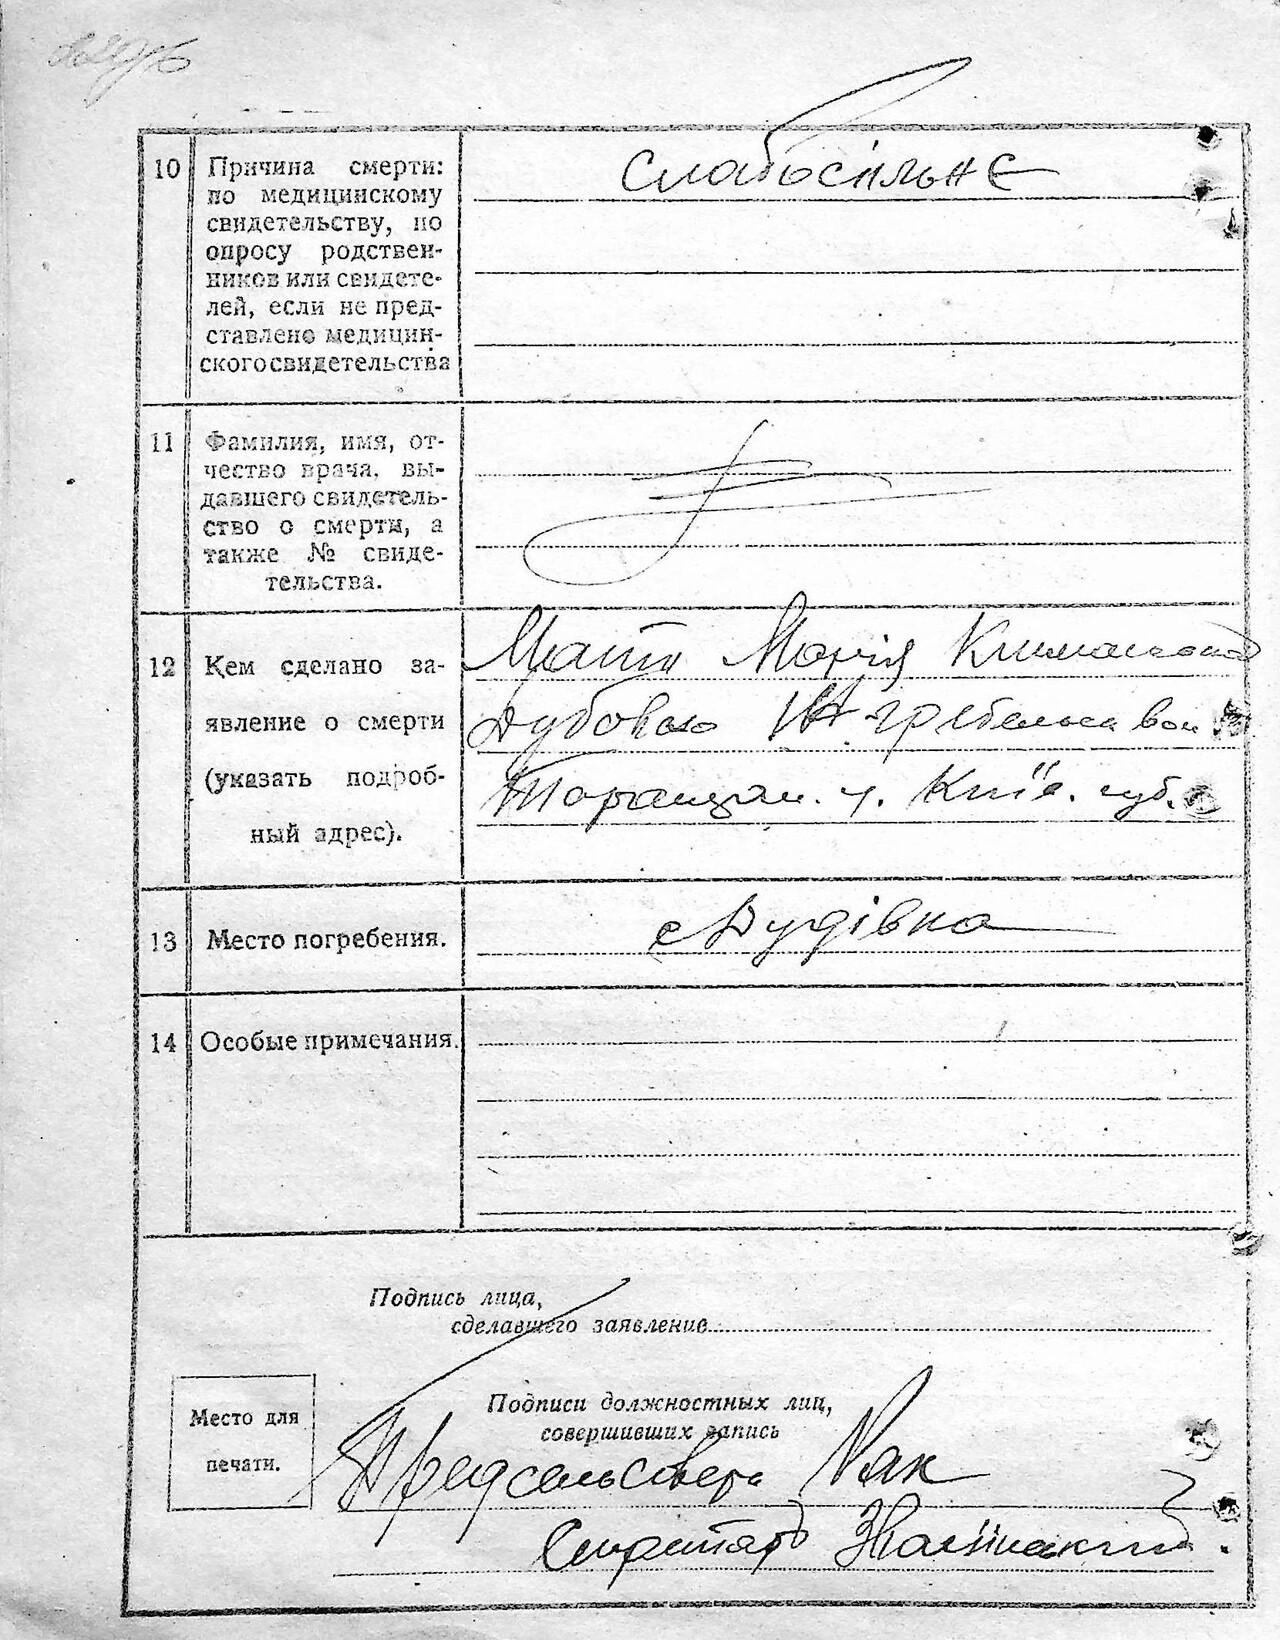 10 Причина смерти:
по медицинскому
свидетельству, по
опросу родствен-
ников или свидете-
лей, если не пред-
ставлено медицин-
ского свидетельства
Слабосильнє
11 Фамилия, имя, от-
чество врача, вы-
давшего свидетель-
ство о смерти, а
также № свиде-
тельства.
12 Кем сделано за-
явление о смерти
(указать подроб-
ный адрес).
Мати Марія
Дубовою
Таращан. у. Київ. губ.
13 Место погребения.
с Дудівка
14 Особые примечания.
Подпись лица,
сделавшего заявление
Место для
печати.
Подписи должностных лиц,
совершивших запись
Предсельсовета
Секретарь